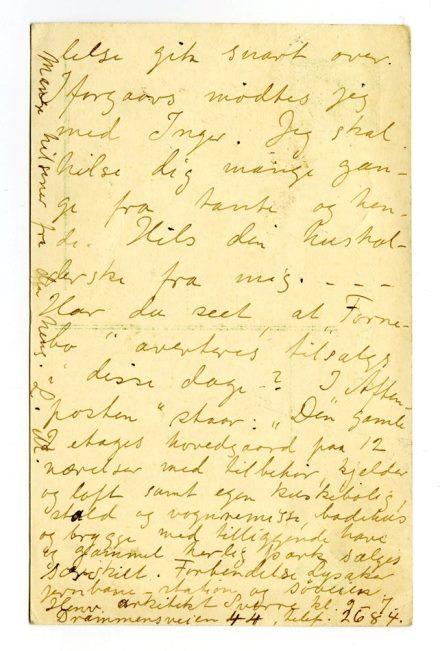 lelse gik snart over.
Iforgaars mødtes jeg
med Inger. Jeg skal
hilse dig mange gan-
ge fra tante og hen-
de. Hils din hushol-
derske fra mig. - - -
Har du seet, at "Forne-
bo" averteres tilsalgs
disse dage-? I "Aften-
posten" staar: "Den gamle
2 etages hovedgaard paa 12
værelser med tilbehør, kjelder
og loft samt egen kuskebolig,
stald og vognremisse, badehus
og brygge med tilliggende have
og gammel herlig park sælges
særskilt. Forbindelse Lysaker
jernbane-station og søveien.
Henv. arkitekt Sverre kl. 9-
Drammensveien 44, telef. 2684.
Mange hilsener fra din heng. L. M.